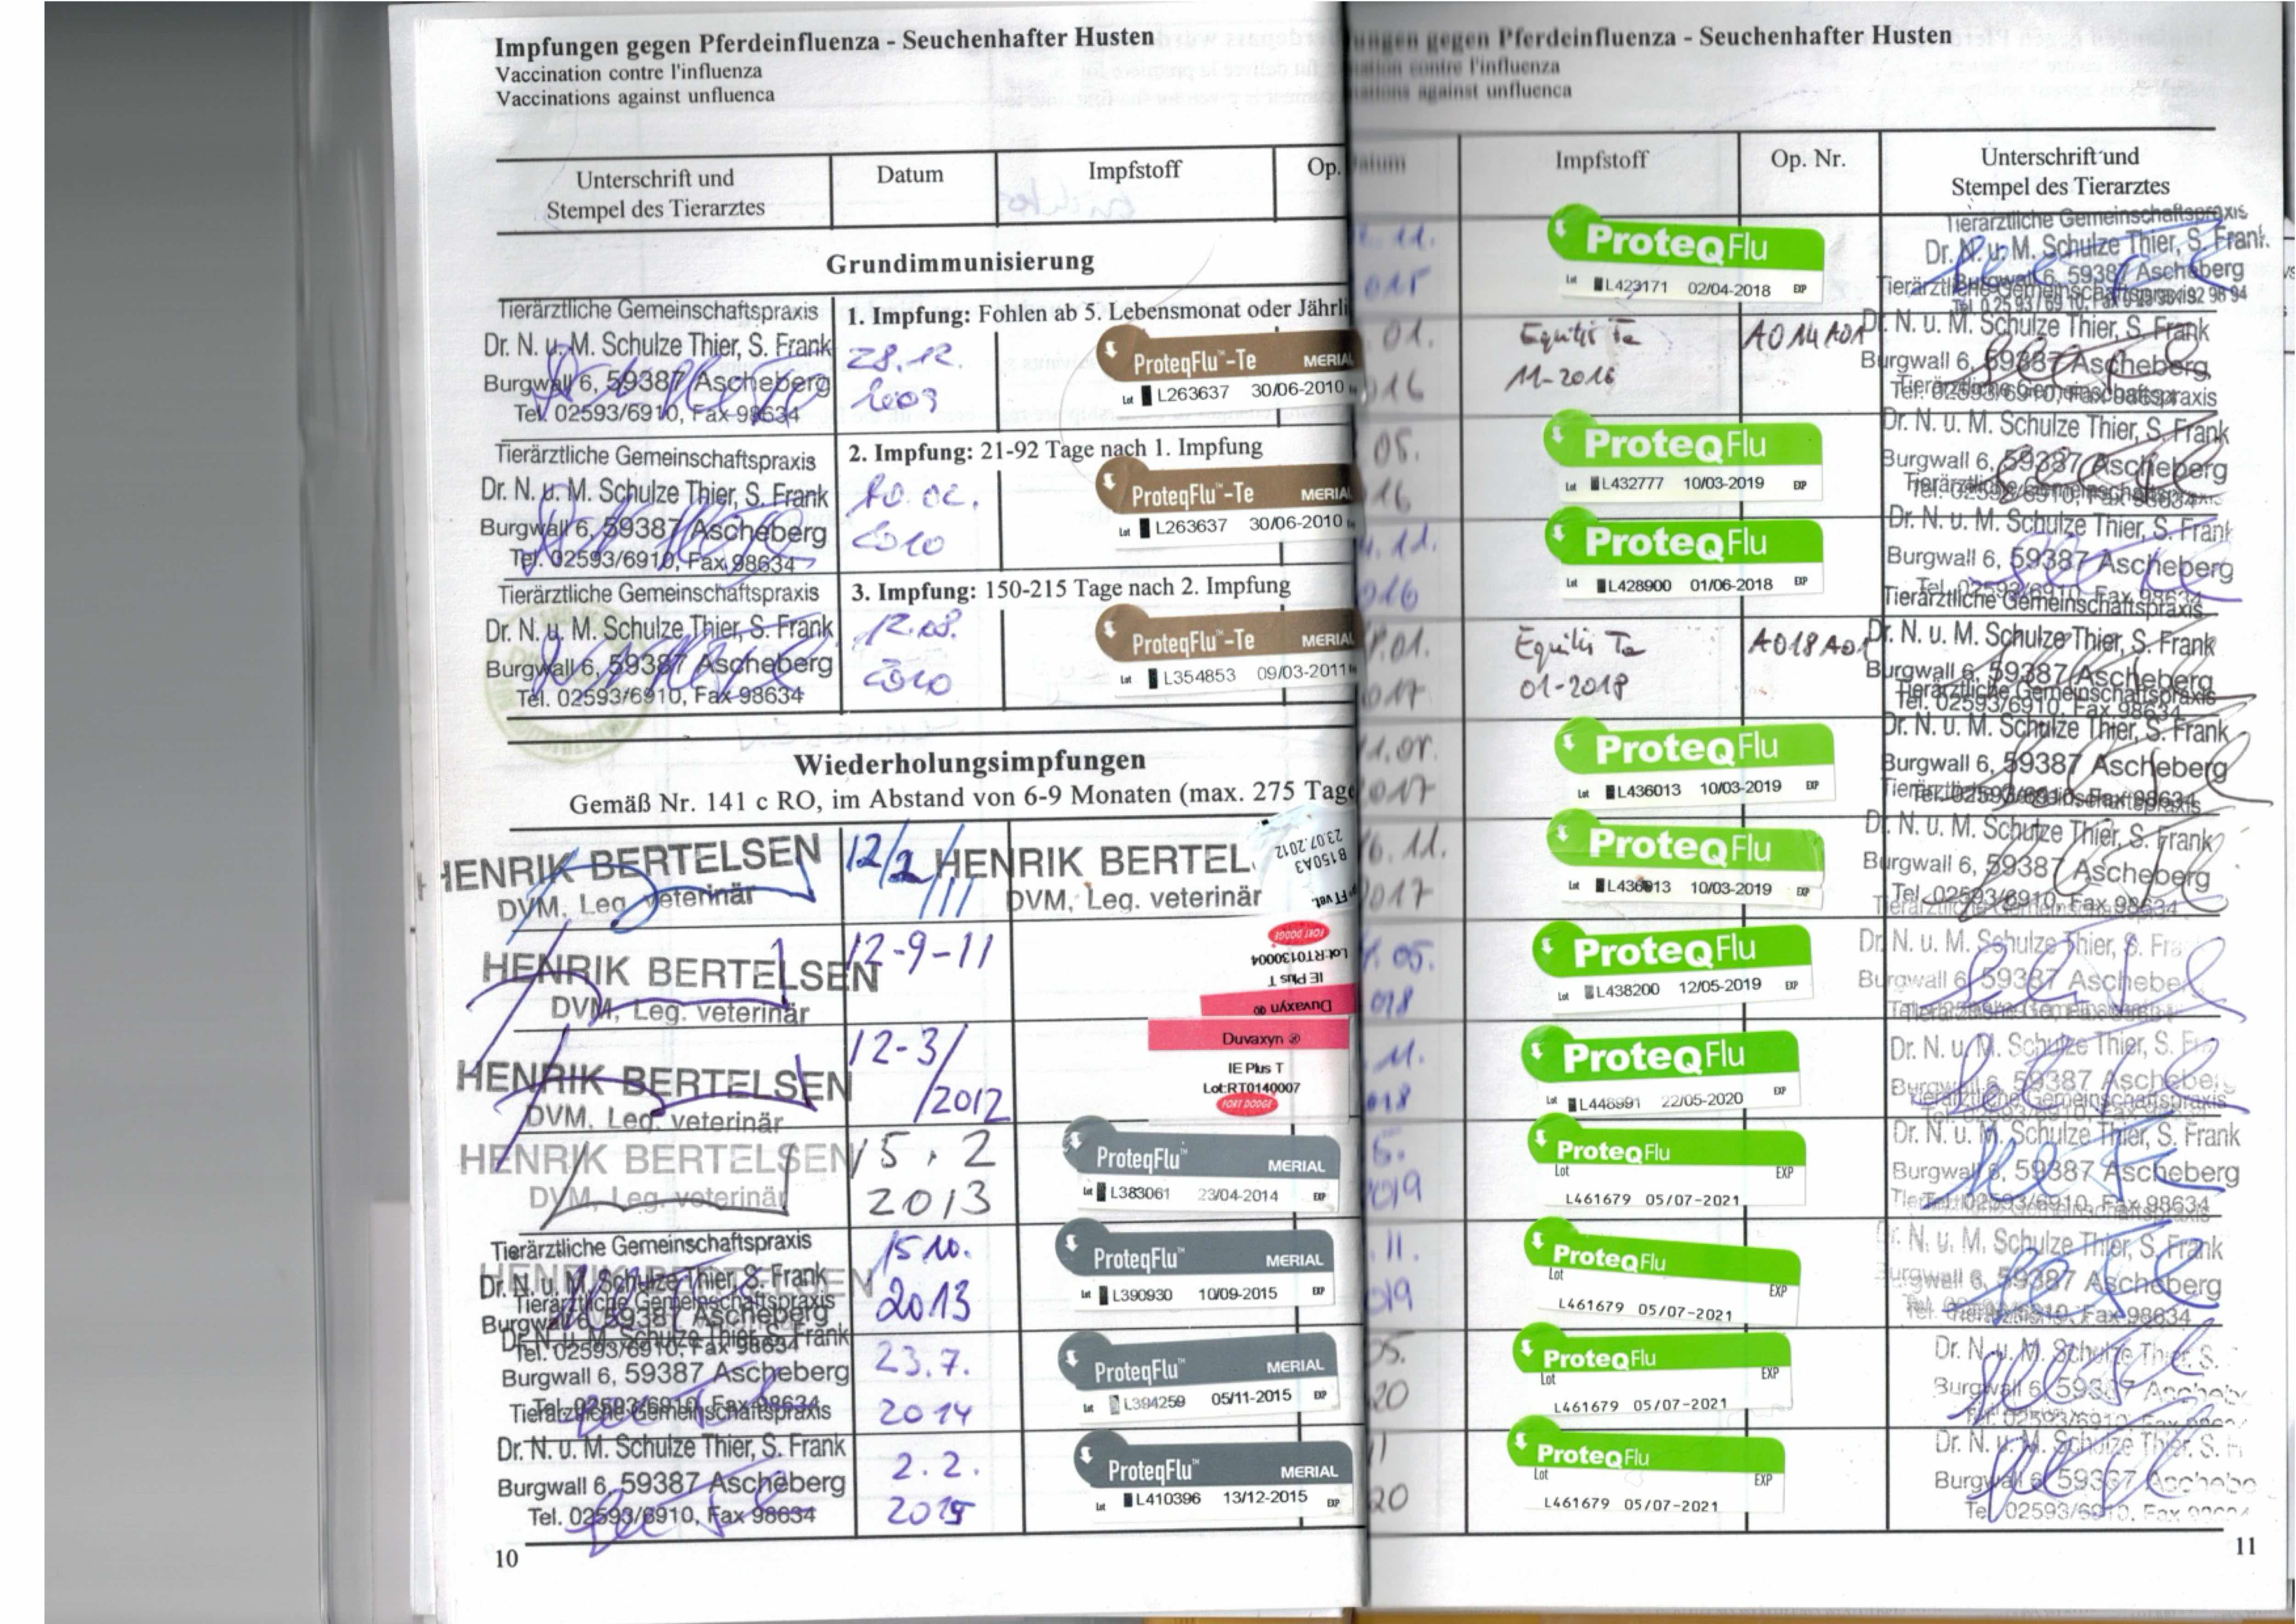 Impfungen gegen Pferdeinfluenza - Seuchenhafter Husten
Vaccination contre l'influenza
Vaccinations against unfluenca
Unterschrift und
Stempel des Tierarztes
Datum
Impfstoff
Op.
Grundimmunisierung
Tierärztliche Gemeinschaftspraxis
Dr. N. u. M. Schulze Thier, S. Frank
Burgwall 6, 59387 Ascheberg
Tel. 02593/6910, Fax 98634
1. Impfung: Fohlen ab 5. Lebensmonat oder Jährli
28.12.
2009
ProteqFlu™-Te MERIAL
Lot L263637 30/06-2010
Tierärztliche Gemeinschaftspraxis
Dr. N. u. M. Schulze Thier, S. Frank
Burgwall 6, 59387 Ascheberg
Tel. 02593/6910, Fax 98634
2. Impfung: 21-92 Tage nach 1. Impfung
10.02.
2010
ProteqFlu™-Te MERIAL
Lot L263637 30/06-2010
Tierärztliche Gemeinschaftspraxis
Dr. N. u. M. Schulze Thier, S. Frank
Burgwall 6, 59387 Ascheberg
Tel. 02593/6910, Fax 98634
3. Impfung: 150-215 Tage nach 2. Impfung
12.08.
2010
ProteqFlu™-Te MERIAL
Lot L354853 09/03-2011
Wiederholungsimpfungen
Gemäß Nr. 141 c RO, im Abstand von 6-9 Monaten (max. 275 Tage
HENRIK BERTELSEN
DVM, Leg. veterinär
12/2/11
HENRIK BERTEL
DVM, Leg. veterinär
23.07.2012
B150A3
FT vet.
HENRIK BERTELSEN
DVM, Leg. veterinär
12-9-11
FORT DODGE
Lot:RT0130004
IE Plus T
Duvaxyn
HENRIK BERTELSEN
DVM, Leg. veterinär
12-3/
/2012
Duvaxyn
IE Plus T
Lot:RT0140007
FORT DODGE
HENRIK BERTELSEN
DVM, Leg. veterinär
15.2
2013
ProteqFlu™ MERIAL
Lot L383061 23/04-2014 EXP
Tierärztliche Gemeinschaftspraxis
Dr. N. u. M. Schulze Thier, S. Frank
Burgwall 6, 59387 Ascheberg
Tel. 02593/6910, Fax 98634
15.10.
2013
ProteqFlu™ MERIAL
Lot L390930 10/09-2015 EXP
Tierärztliche Gemeinschaftspraxis
Dr. N. u. M. Schulze Thier, S. Frank
Burgwall 6, 59387 Ascheberg
Tel. 02593/6910, Fax 98634
23.7.
2014
ProteqFlu™ MERIAL
Lot L394259 05/11-2015 EXP
Tierärztliche Gemeinschaftspraxis
Dr. N. u. M. Schulze Thier, S. Frank
Burgwall 6, 59387 Ascheberg
Tel. 02593/6910, Fax 98634
2.2.
2015
ProteqFlu™ MERIAL
Lot L410396 13/12-2015 EXP
10
ungen gegen Pferdeinfluenza - Seuchenhafter Husten
nation contre l'influenza
nations against unfluenca
atum
Impfstoff
Op. Nr.
Unterschrift und
Stempel des Tierarztes
11.
015
ProteqFlu
Lot L423171 02/04-2018 EXP
Tierärztliche Gemeinschaftspraxis
Dr. N. u. M. Schulze Thier, S. Frank
Burgwall 6, 59387 Ascheberg
01.
016
Equilis Te
11-2016
A014A01
Tierärztliche Gemeinschaftspraxis
Dr. N. u. M. Schulze Thier, S. Frank
Burgwall 6, 59387 Ascheberg
Tel. 02593/6910, Fax 98634
05.
16
ProteqFlu
Lot L432777 10/03-2019 EXP
Tierärztliche Gemeinschaftspraxis
Dr. N. u. M. Schulze Thier, S. Frank
Burgwall 6, 59387 Ascheberg
Tel. 02593/6910, Fax 98634
11.
016
ProteqFlu
Lot L428900 01/06-2018 EXP
Tierärztliche Gemeinschaftspraxis
Dr. N. u. M. Schulze Thier, S. Frank
Burgwall 6, 59387 Ascheberg
Tel. 02593/6910, Fax 98634
01.
017
Equilis Te
01-2018
A018A01
Tierärztliche Gemeinschaftspraxis
Dr. N. u. M. Schulze Thier, S. Frank
Burgwall 6, 59387 Ascheberg
Tel. 02593/6910, Fax 98634
017
ProteqFlu
Lot L436013 10/03-2019 EXP
Tierärztliche Gemeinschaftspraxis
Dr. N. u. M. Schulze Thier, S. Frank
Burgwall 6, 59387 Ascheberg
Tel. 02593/6910, Fax 98634
6.11.
2017
ProteqFlu
Lot L436013 10/03-2019 EXP
Tierärztliche Gemeinschaftspraxis
Dr. N. u. M. Schulze Thier, S. Frank
Burgwall 6, 59387 Ascheberg
Tel. 02593/6910, Fax 98634
05.
018
ProteqFlu
Lot L438200 12/05-2019 EXP
Dr. N. u. M. Schulze Thier, S. Fra
Burgwall 6, 59387 Aschebe
11.
018
ProteqFlu
Lot L446991 22/05-2020 EXP
Dr. N. u. M. Schulze Thier, S. Fra
Burgwall 6, 59387 Ascheber
2019
ProteqFlu
Lot EXP
L461679 05/07-2021
Tierärztliche Gemeinschaftspraxis
Dr. N. u. M. Schulze Thier, S. Frank
Burgwall 6, 59387 Ascheberg
Tel. 02593/6910, Fax 98634
11.
019
ProteqFlu
Lot EXP
L461679 05/07-2021
Dr. N. u. M. Schulze Thier, S. Frank
Burgwall 6, 59387 Ascheberg
Tel. 02593/6910, Fax 98634
05.
20
ProteqFlu
Lot EXP
L461679 05/07-2021
Dr. N. u. M. Schulze Thier, S.
Burgwall 6, 59387 Aschebe
Tel. 02593/6910, Fax
11
20
ProteqFlu
Lot EXP
L461679 05/07-2021
Dr. N. u. M. Schulze Thier, S. F
Burgwall 6, 59387 Aschebe
Tel. 02593/6910, Fax
11